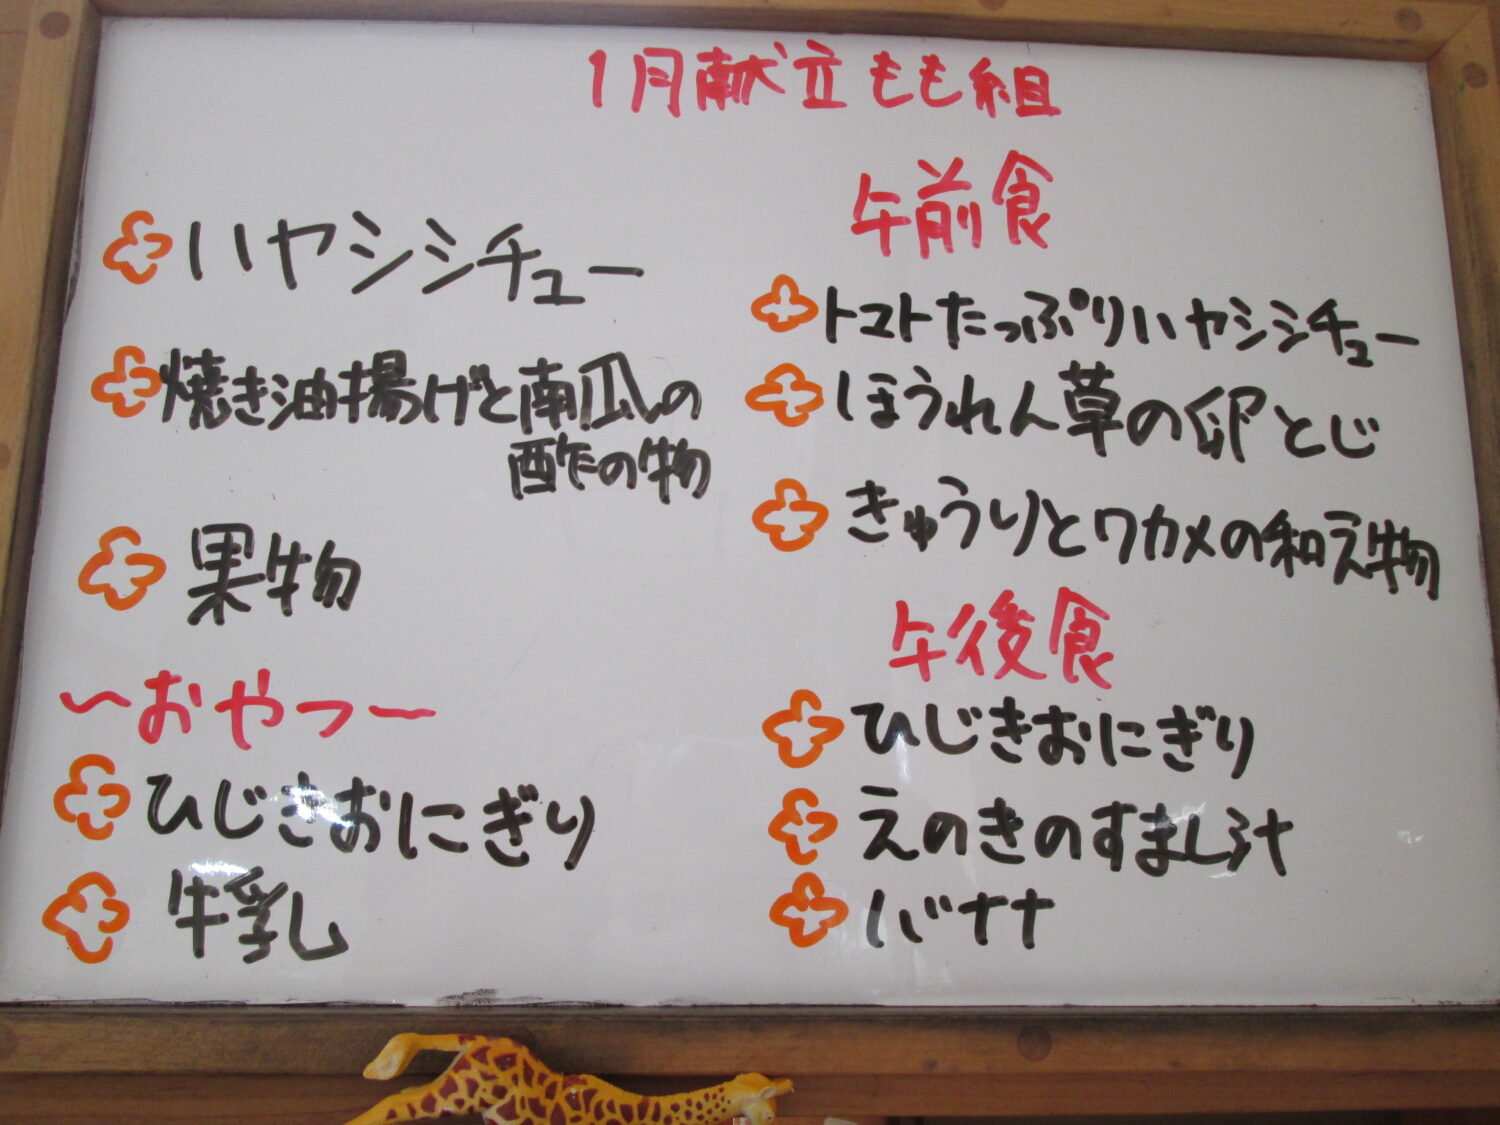 1月献立もも組
ハヤシシチュー
焼き油揚げと南瓜の
酢の物
果物
〜おやつ〜
ひじきおにぎり
牛乳
午前食
トマトたっぷりハヤシシチュー
ほうれん草の卵とじ
きゅうりとワカメの和え物
午後食
ひじきおにぎり
えのきのすまし汁
バナナ